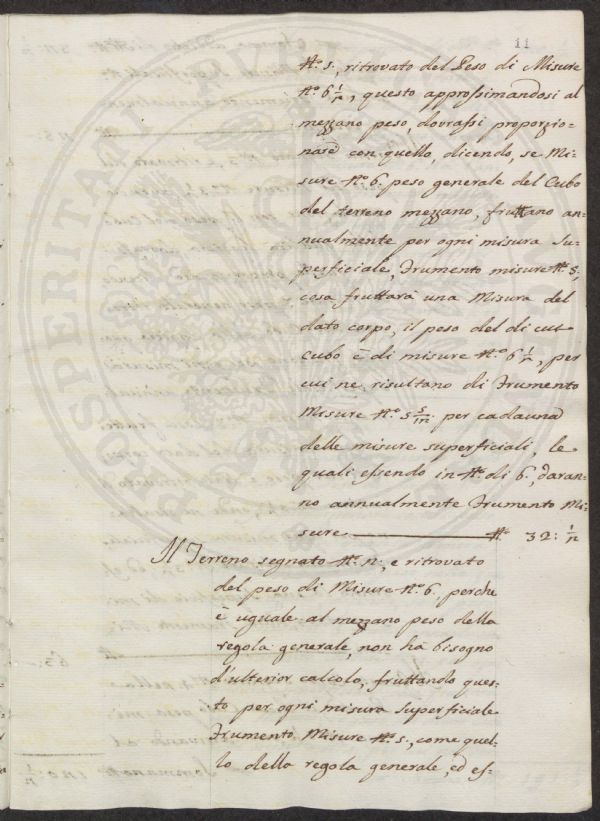 11
N.º 5., ritrovato del Peso di Misure
N.º 6 1/2, questo approssimandosi al
mezzano peso, dovrassi proporzio-
nare con quello, dicendo, se Mi-
sure N.º 6. peso generale del Cubo
del terreno mezzano, fruttano an-
nualmente per ogni misura Su-
perficiale, Frumento misure N.º 5,
cosa fruttarà una Misura del
dato corpo, il peso del di cui
Cubo è di misure N.º 6 1/2, per
cui ne risultano di Frumento
Misure N.º 5 5/12 per cadauna
delle misure superficiali, le
quali essendo in N.º di 6., daran-
no annualmente Frumento Mi-
sure N.º 32: 1/2
Il Terreno segnato N.º 2., e ritrovato
del peso di Misure N.º 6. perche
è uguale al mezzano peso della
regola generale, non hà bisogno
d'ulterior calcolo, fruttando ques-
to per ogni misura Superficiale
Frumento Misure N.º 5., come quel-
lo della regola generale, ed es-
PROSPERITATI